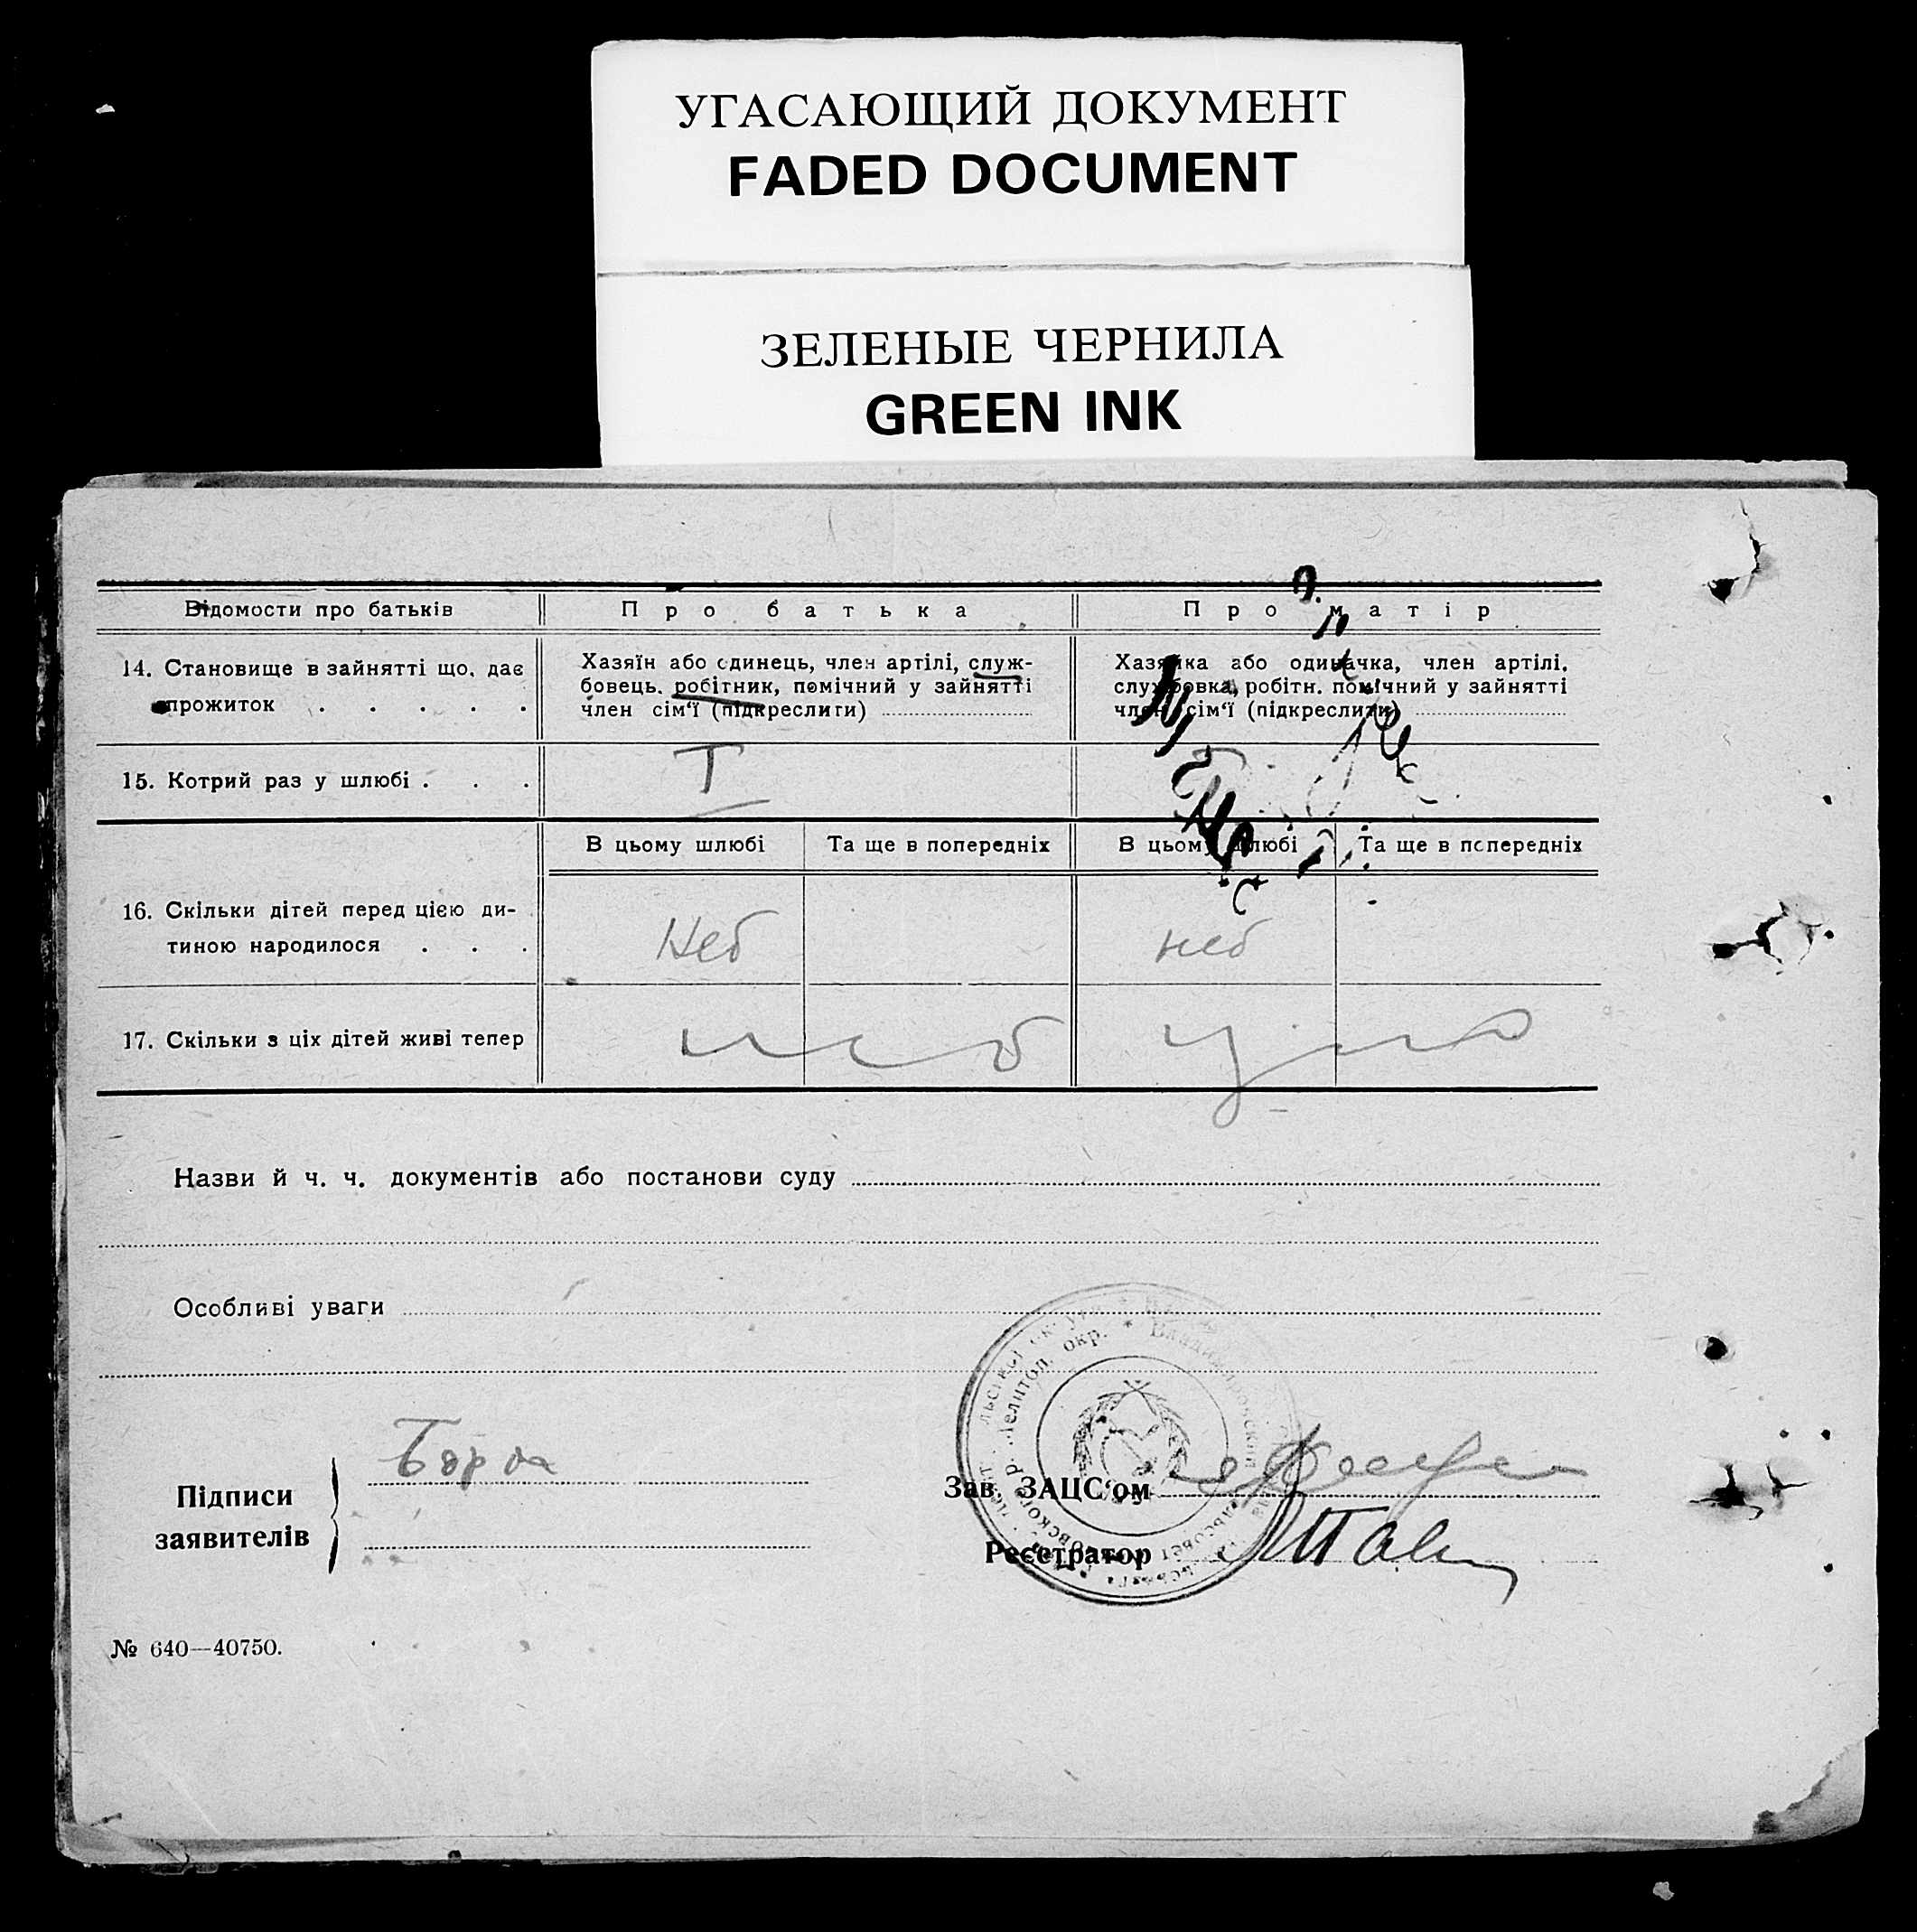 УГАСАЮЩИЙ ДОКУМЕНТ
FADED DOCUMENT
ЗЕЛЕНЫЕ ЧЕРНИЛА
GREEN INK
Відомости про батьків
Про батька
Про матір
14. Становище в зайнятті що, дає
прожиток . . . . .
Хазяїн або одинець, член артілі, служ-
бовець. робітник, помічний у зайнятті
член сім'ї (підкреслиги)
Хазяйка або одиначка, член артілі,
службовка, робітн. помічний у зайнятті
член сім'ї (підкреслити)
15. Котрий раз у шлюбі . . .
I
В цьому шлюбі
Та ще в попередніх
В цьому шлюбі
Та ще в попередніх
16. Скільки дітей перед цією ди-
тиною народилося . . .
17. Скільки з ціх дітей живі тепер
Назви й ч. ч. документів або постанови суду
Особливі уваги
Мелитоп. окр. * Владимировский
Підписи
заявителів
Зав. ЗАЦС'ом
Реєстратор
№ 640—40750.